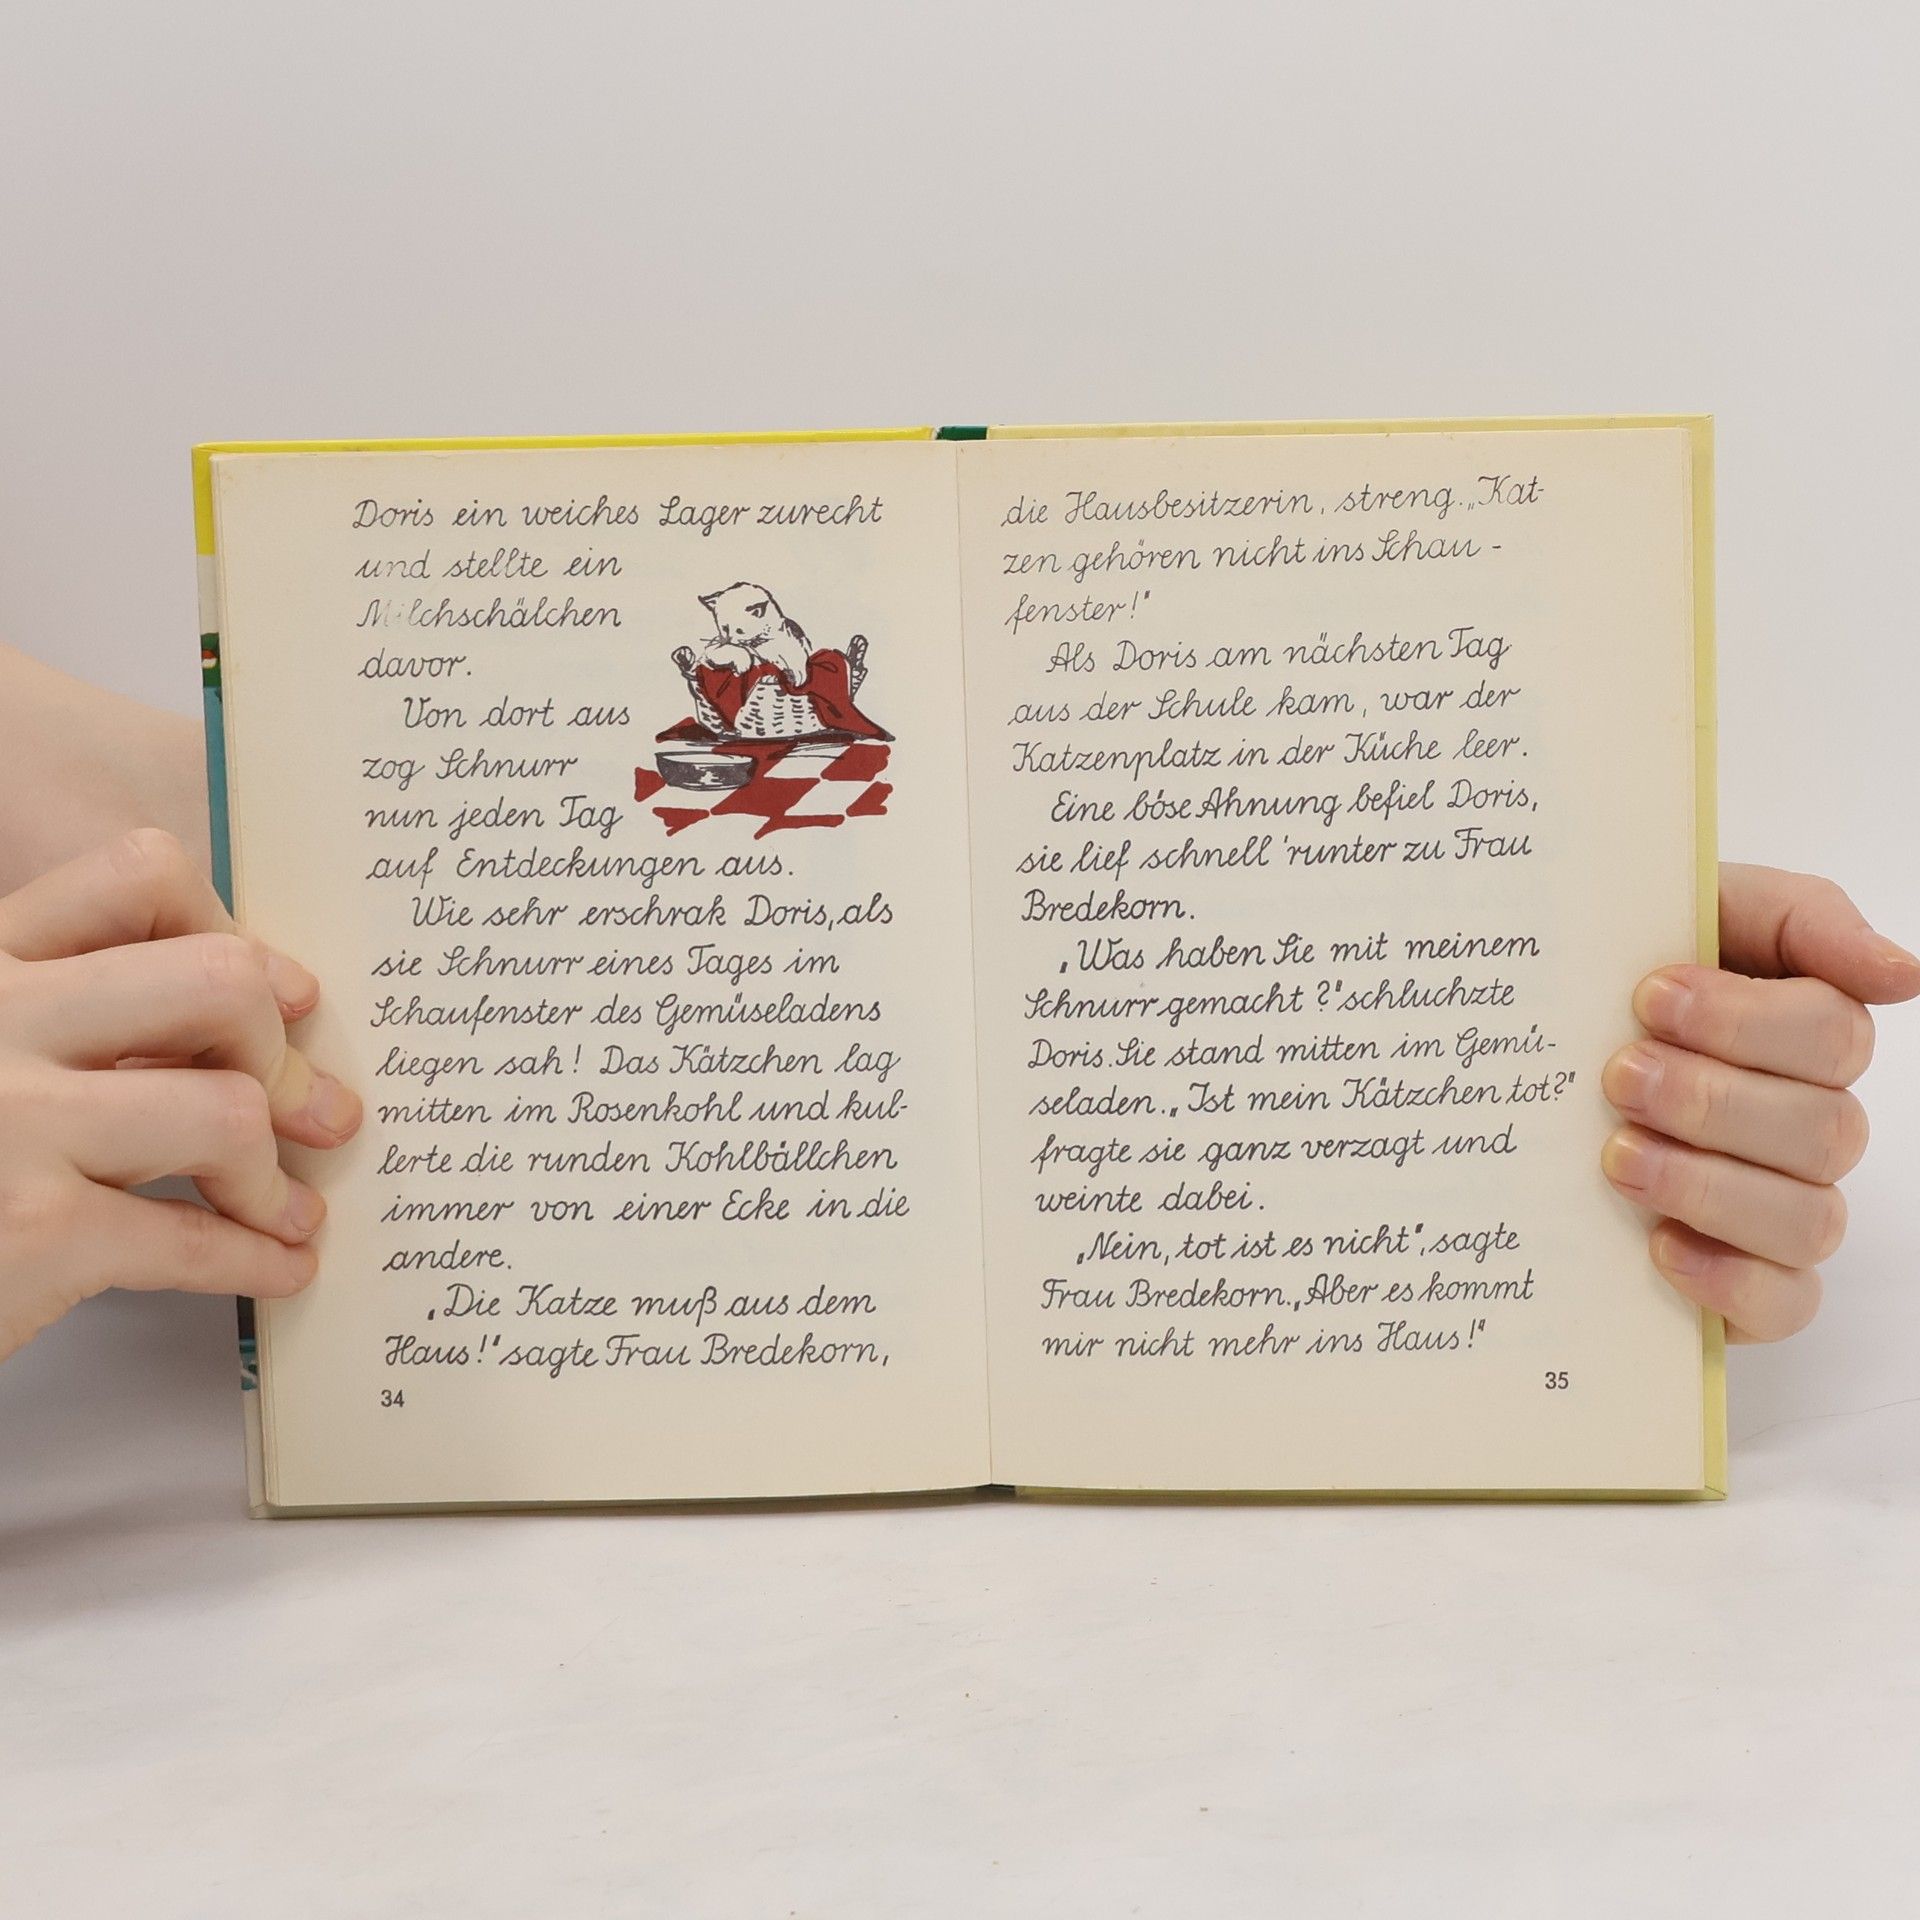 Doris ein weiches Lager zurecht
und stellte ein
Milchschälchen
davor.
Von dort aus
zog Schnurr
nun jeden Tag
auf Entdeckungen aus.
Wie sehr erschrak Doris, als
sie Schnurr eines Tages im
Schaufenster des Gemüseladens
liegen sah! Das Kätzchen lag
mitten im Rosenkohl und kul-
lerte die runden Kohlbällchen
immer von einer Ecke in die
andere.
„Die Katze muß aus dem
Haus!" sagte Frau Bredekorn,
34
die Hausbesitzerin, streng. „Kat-
zen gehören nicht ins Schau-
fenster!"
Als Doris am nächsten Tag
aus der Schule kam, war der
Katzenplatz in der Küche leer.
Eine böse Ahnung befiel Doris,
sie lief schnell 'runter zu Frau
Bredekorn.
„Was haben Sie mit meinem
Schnurr gemacht?" schluchzte
Doris. Sie stand mitten im Gemü-
seladen. „Ist mein Kätzchen tot?"
fragte sie ganz verzagt und
weinte dabei.
„Nein, tot ist es nicht", sagte
Frau Bredekorn. „Aber es kommt
mir nicht mehr ins Haus!"
35